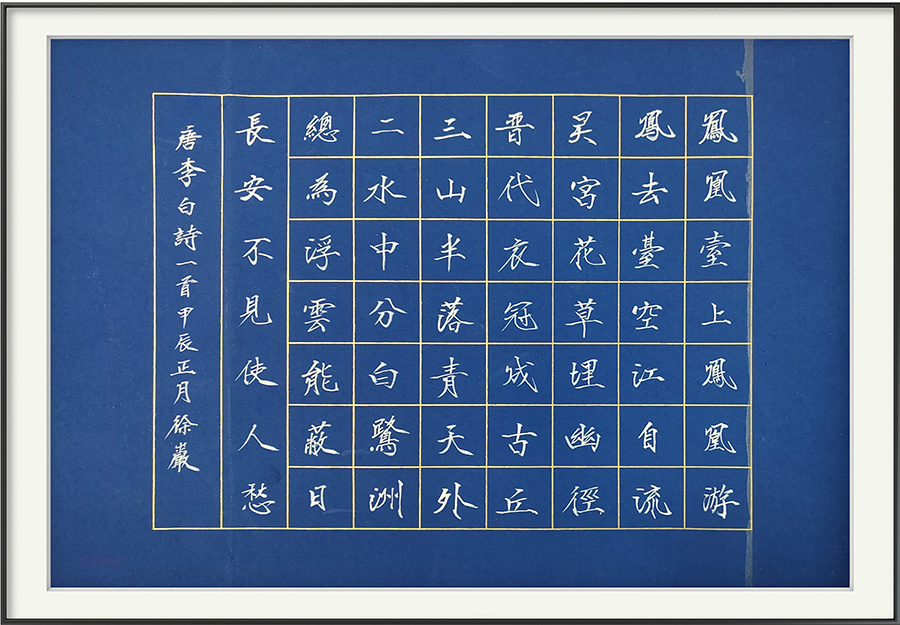 鳳凰臺上鳳凰游
鳳去臺空江自流
吴宮花草埋幽徑
晋代衣冠成古丘
三山半落青天外
二水中分白鷺洲
總為浮雲能蔽日
長安不見使人愁
唐李白詩一首甲辰正月徐巖